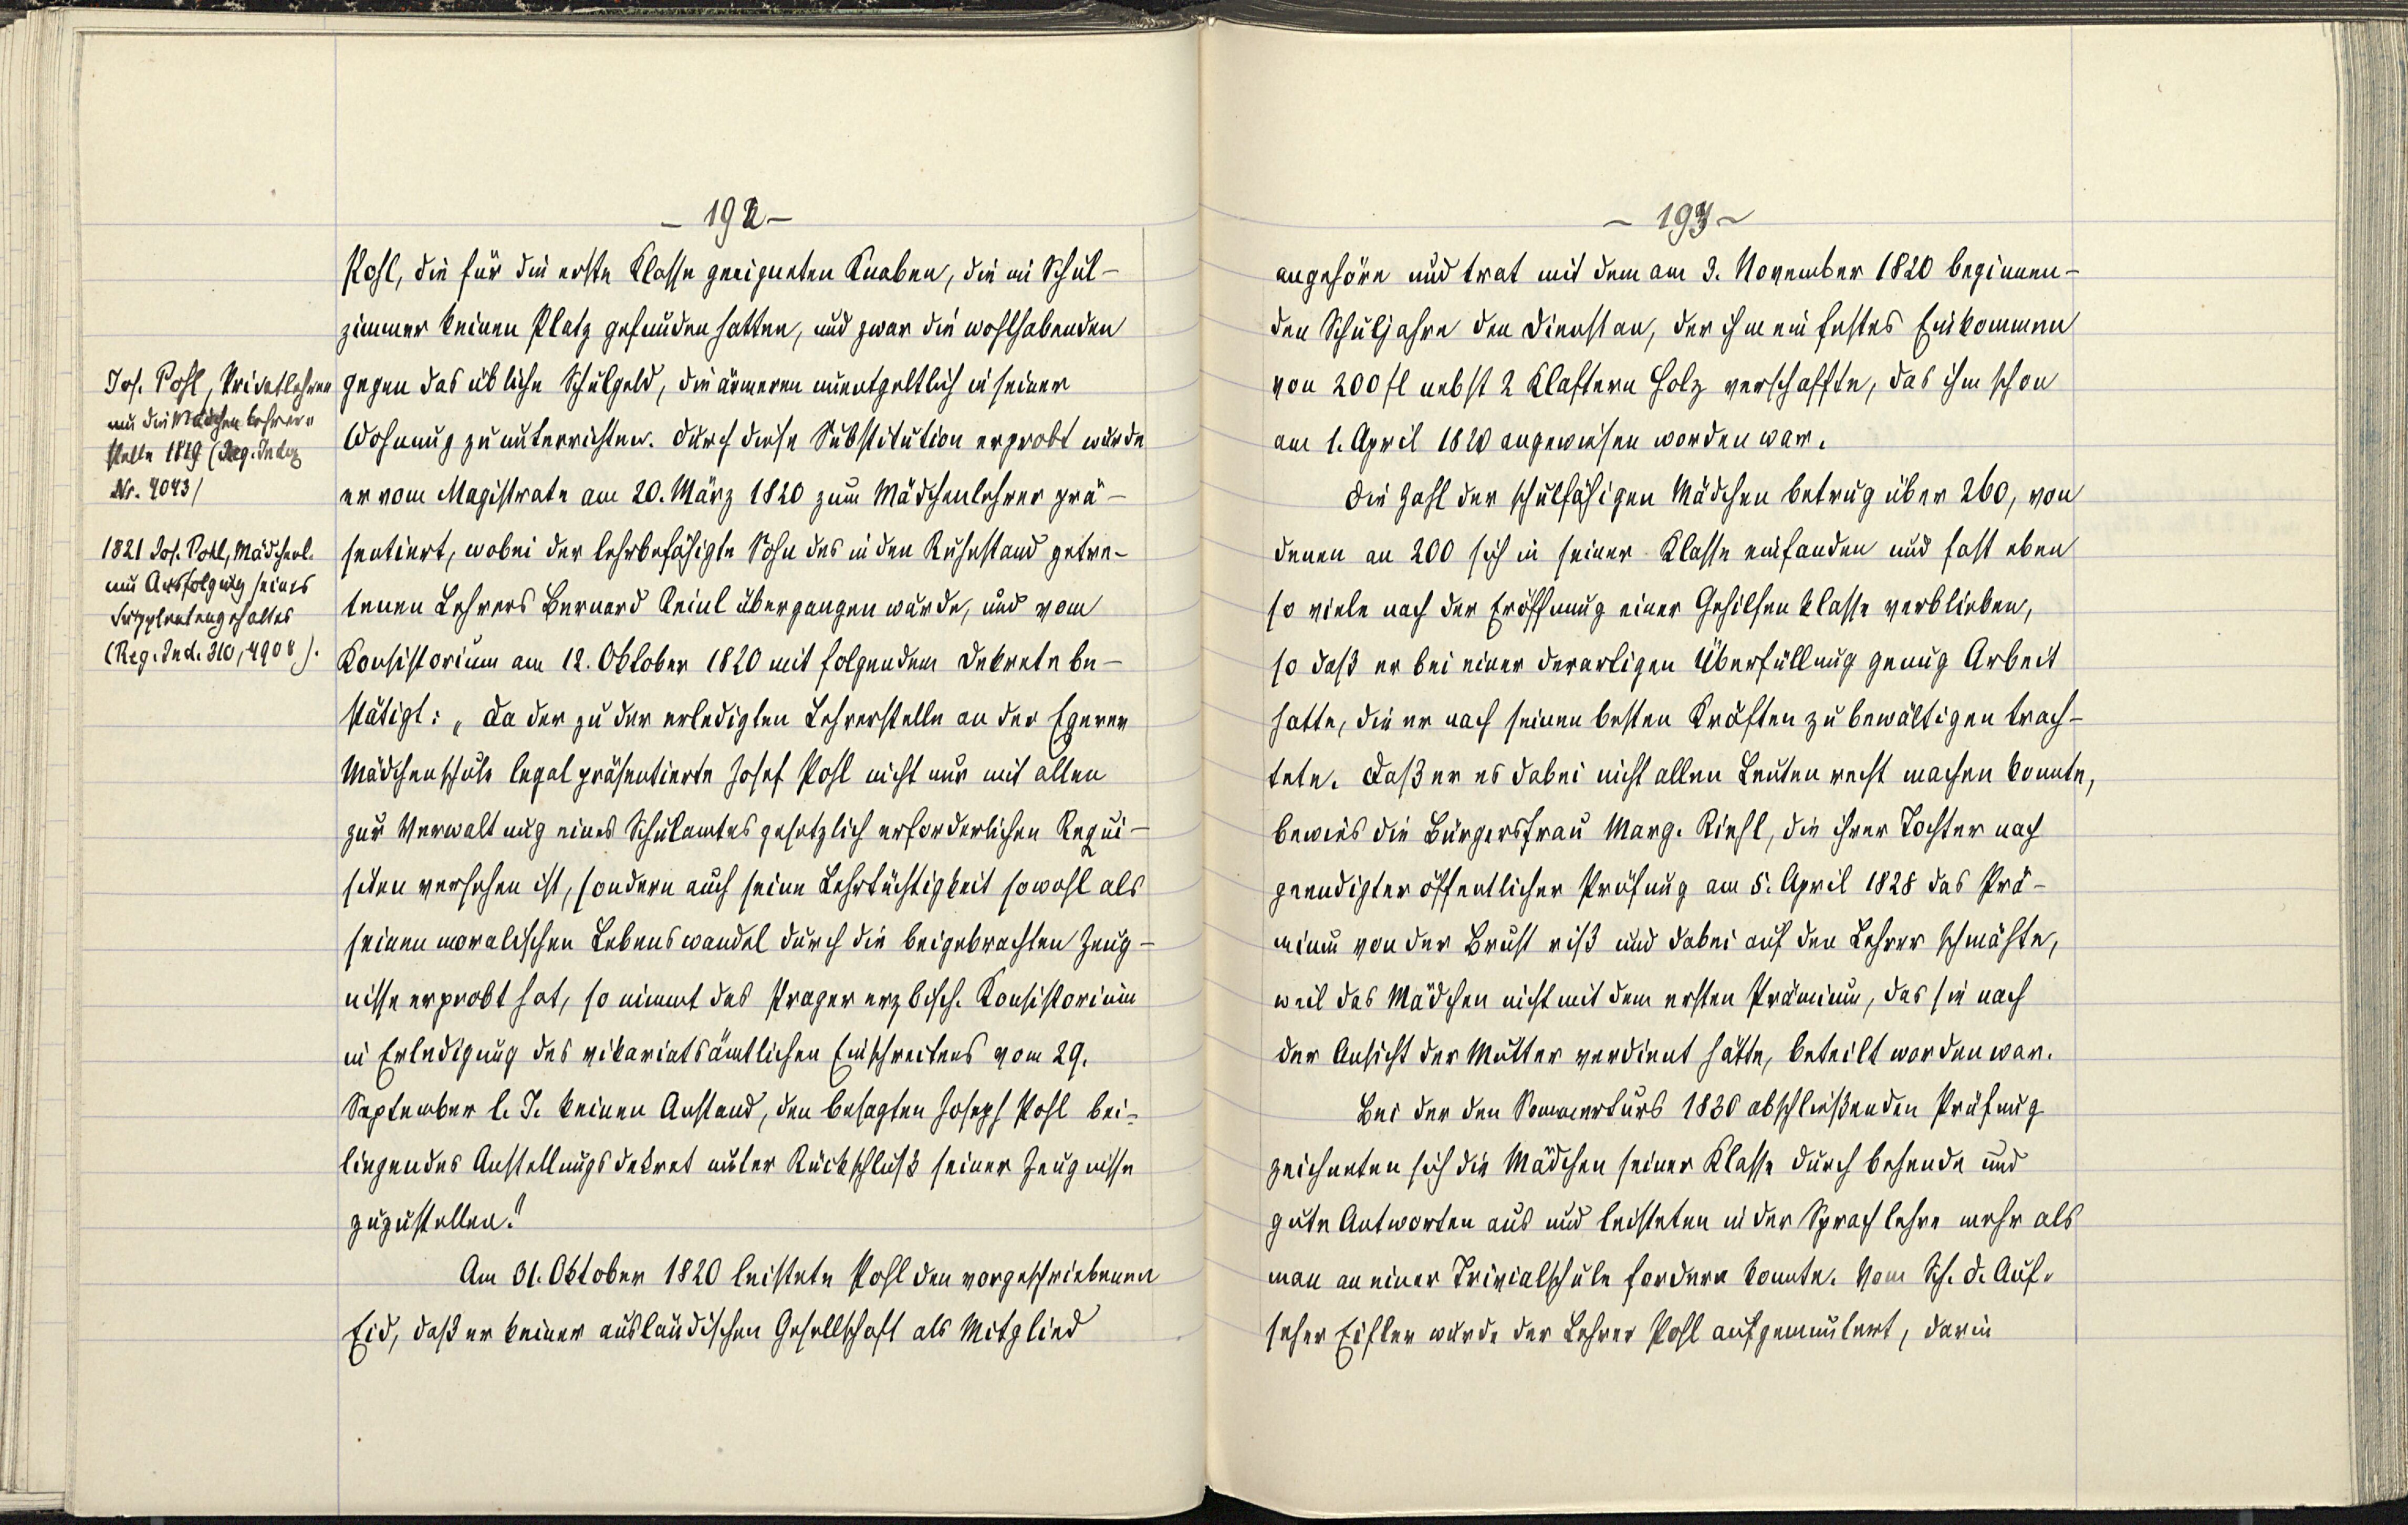 - 192 -
Pohl, die für die erste Klasse geeigneten Knaben, die im Schul-
zimmer keinen Platz gefunden hatten, und zwar die wohlhabenden
gegen das übliche Schulgeld, die ärmeren unentgeltlich in seiner
Wohnung zu unterrichten. Durch diese Substitution erprobt wurde
er vom Magistrate am 20. März 1820 zum Mädchenlehrer prä-
sentiert, wobei der lehrbefähigte Sohn des in den Ruhestand getre-
tenen Lehrers Bernard Reinl übergangen wurde, und vom
Konsistorium am 12. Oktober 1820 mit folgendem Dekrete be-
stätigt: „Da der zu der erledigten Lehrerstelle an der Egerer
Mädchenschule legal präsentierte Josef Pohl nicht nur mit allen
zur Verwaltung eines Schulamtes gesetzlich erforderlichen Requi-
siten versehen ist, sondern auch seine Lehrtüchtigkeit sowohl als
seinen moralischen Lebenswandel durch die beigebrachten Zeug-
nisse erprobt hat, so nimmt das Prager erzbisch. Konsistorium
in Erledigung des vikariatsämtlichen Einschreitens vom 29.
September l. J. keinen Anstand, den besagten Joseph Pohl bei-
liegendes Anstellungsdekret unter Rückschluß seiner Zeugnisse
zuzustellen."
Am 31. Oktober 1820 leistete Pohl den vorgeschriebenen
Eid, daß er keiner ausländischen Gesellschaft als Mitglied
Jos. Pohl, Privatlehrer
um die Mädchenlehrer-
stelle 1819 (Reg. Index
Nr. 4043)
1821 Jos. Pohl, Mädchenl.
um Ausfolgung seines
Supplentengehaltes
(Reg. Ind. 310, 4908).
- 193 -
angehöre und trat mit dem am 3. November 1820 beginnen-
den Schuljahre den Dienst an, der ihm ein festes Einkommen
von 200 fl nebst 2 Klaftern Holz verschaffte, das ihm schon
am 1. April 1820 angewiesen worden war.
Die Zahl der schulfähigen Mädchen betrug über 260, von
denen an 200 sich in seiner Klasse einfanden und fast eben
so viele nach der Eröffnung einer Gehilfenklasse verblieben,
so daß er bei einer derartigen Überfüllung genug Arbeit
hatte, die er nach seinen besten Kräften zu bewältigen trach-
tete. Daß er es dabei nicht allen Leuten recht machen konnte,
bewies die Bürgersfrau Marg. Riehl, die ihrer Tochter nach
geendigter öffentlicher Prüfung am 5. April 1828 das Prä-
mium von der Brust riß und dabei auf den Lehrer schmähte,
weil das Mädchen nicht mit dem ersten Prämium, das sie nach
der Ansicht der Mutter verdient hätte, beteilt worden war.
Bei der den Sommerkurs 1830 abschließenden Prüfung
zeichneten sich die Mädchen seiner Klasse durch behende und
gute Antworten aus und leisteten in der Sprachlehre mehr als
man an einer Trivialschule fordern konnte. Vom Sch. d. Auf-
seher Eisler wurde der Lehrer Pohl aufgemuntert, darin